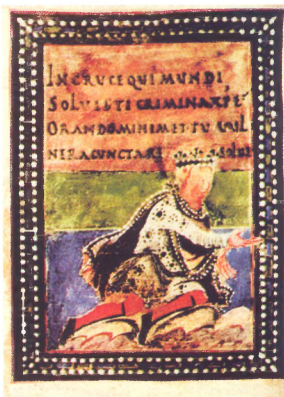 IN CRUCE QUI MUNDI
SOLUISTI CRIMINA XPE
ORANDO MIHIMET TU UUL
NERA CUNCTA RE